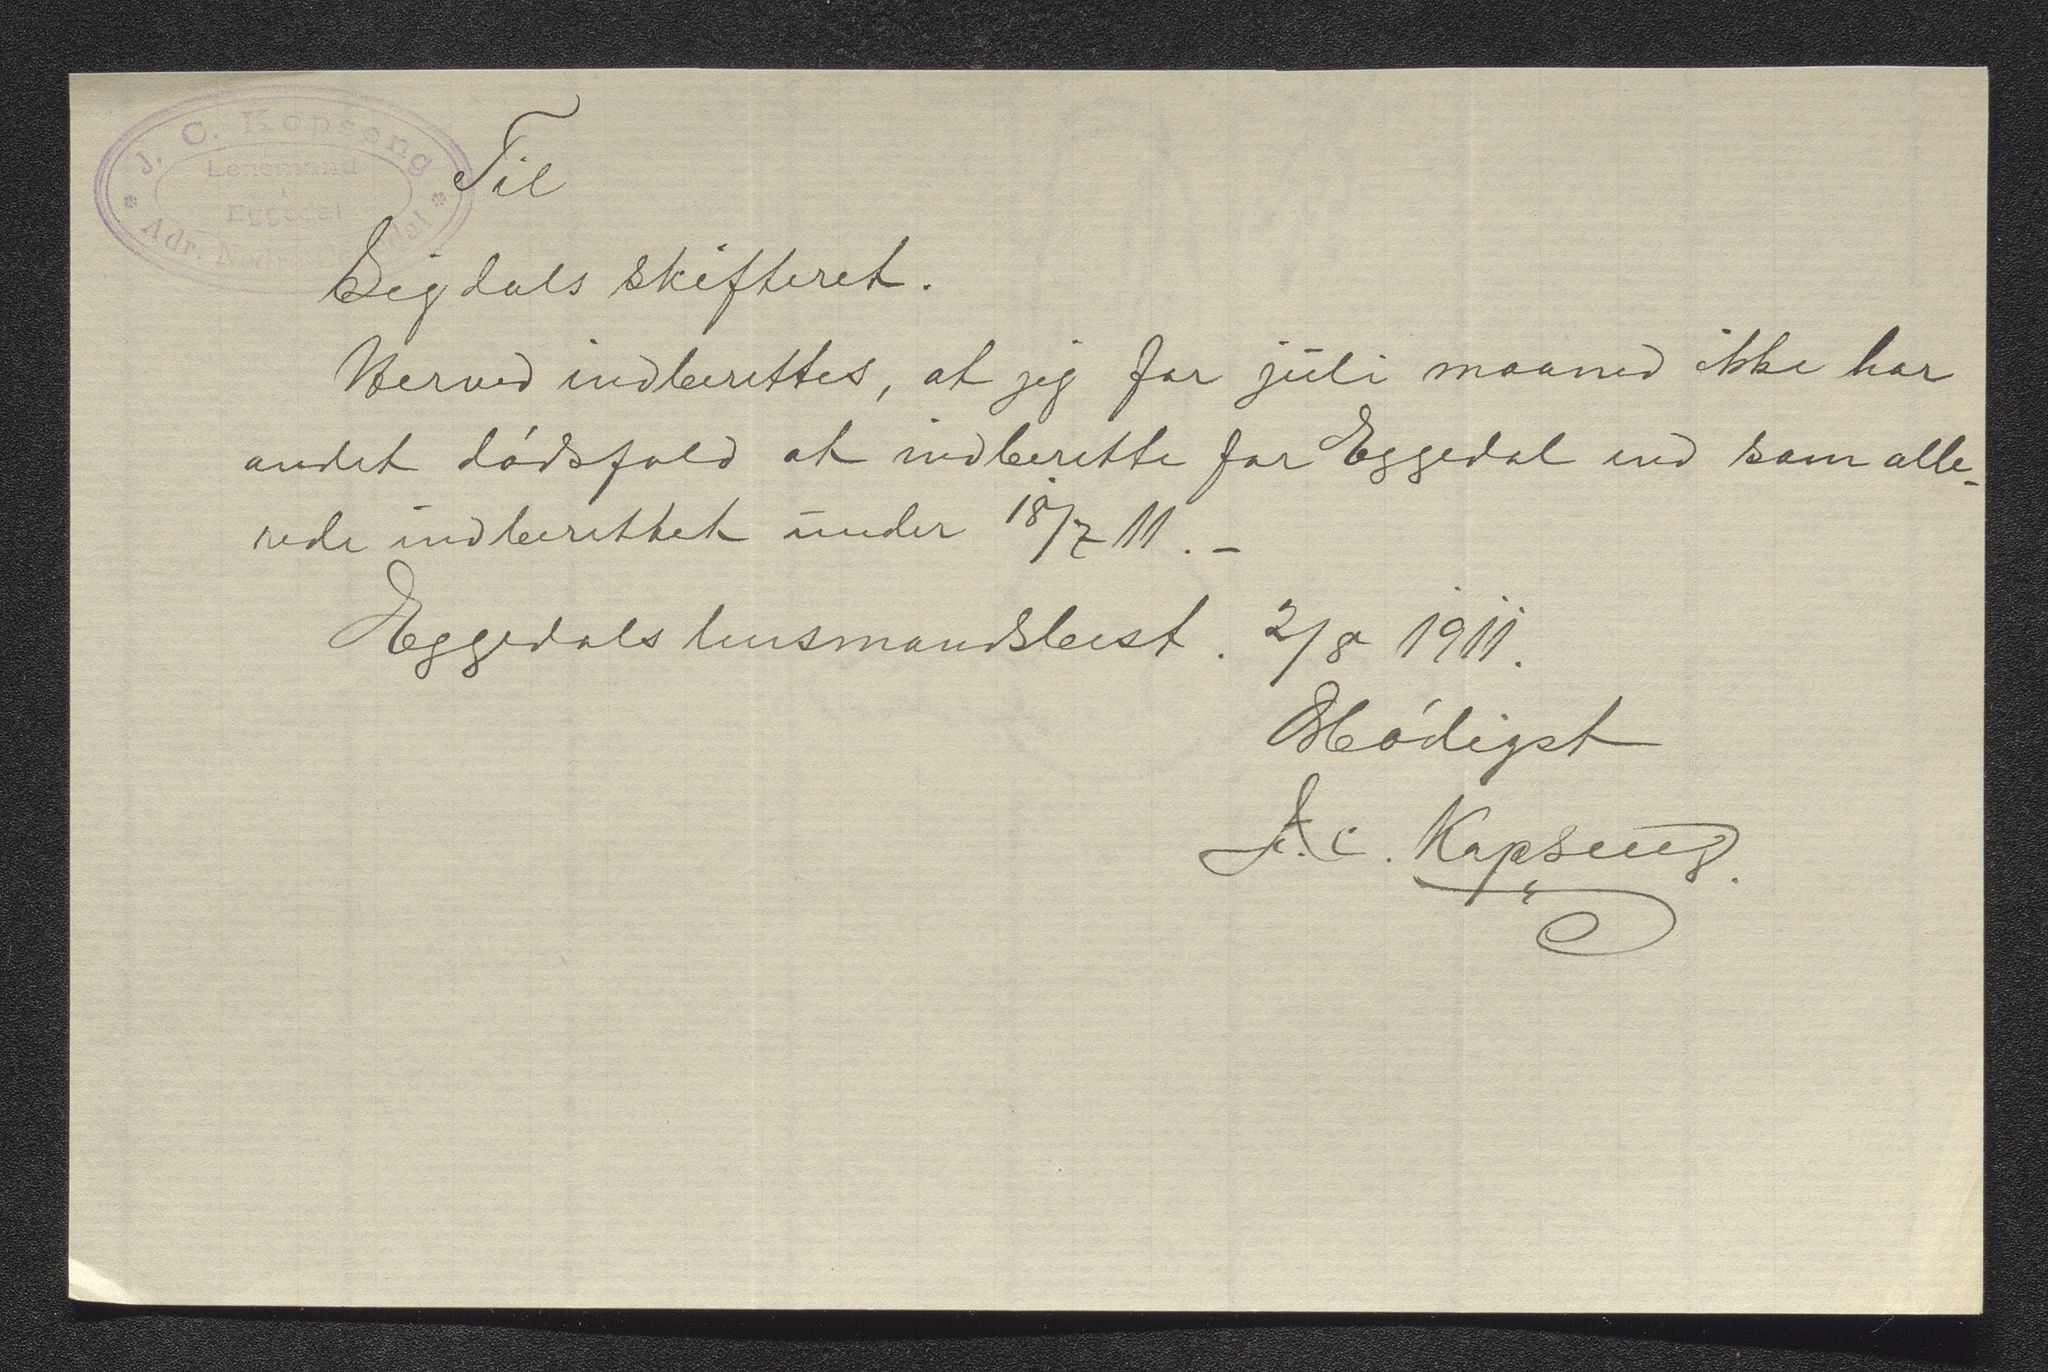 J. C. Kopseng
Lensmand
i
Eggedal
Adr. Nedre Eggedal
Til
Sigdals skifteret.
Herved indberettes, at jeg for juli maaned ikke har
andet dødsfald at indberette for Eggedal end som alle-
rede indberettet under 18/7 11. –
Eggedals lensmandsbest. 2/8 1911.
Ærbødigst
J. C. Kopseng.